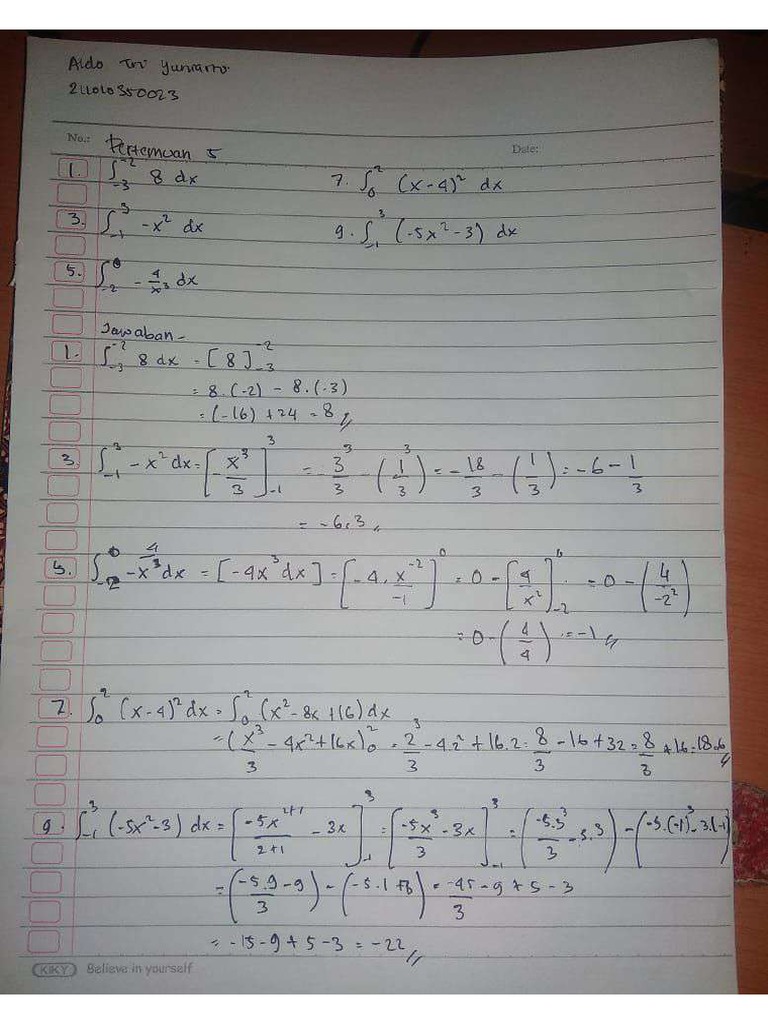 Aldo Tri Yunianto
211010350023
No.: Pertemuan 5 Date:
1. ∫₋₃⁻² 8 dx 7. ∫₀² (x-4)² dx
3. ∫₋₁³ -x² dx 9. ∫₋₁³ (-5x²-3) dx
5. ∫₋₂⁰ -4/x³ dx
Jawaban-
1. ∫₋₃⁻² 8 dx = [8]₋₃⁻²
= 8.(-2) - 8.(-3)
= (-16) + 24 = 8 //
3. ∫₋₁³ -x² dx = [-x³/3]₋₁³ = -3³/3 - (1³/3) = -18/3 - (1/3) = -6 - 1/3
= -6,3 //
5. ∫₋₂⁰ 4/-x³ dx = [-4x³ dx] = [-4. x⁻²/-1]⁰ = 0 - [4/x²]₋₂⁰ = 0 - (4/-2²)
= 0 - (4/4) = -1 //
7. ∫₀² (x-4)² dx = ∫₀² (x²-8x+16) dx
= (x³/3 - 4x²+16x)₀² = 2³/3 - 4.2² + 16.2 = 8/3 - 16 + 32 = 8/3 + 16 = 18.6 //
9. ∫₋₁³ (-5x²-3) dx = [-5x²⁺¹/2+1 - 3x]₋₁³ = [-5x³/3 - 3x]₋₁³ = (-5.3³/3 - 3.3) - (-5.(-1)³ - 3.(-1)
= (-5.9/3 - 9) - (-5.1+3) = -45/3 - 9 + 5 - 3
= -15 - 9 + 5 - 3 = -22 //
KIKY Believe in yourself